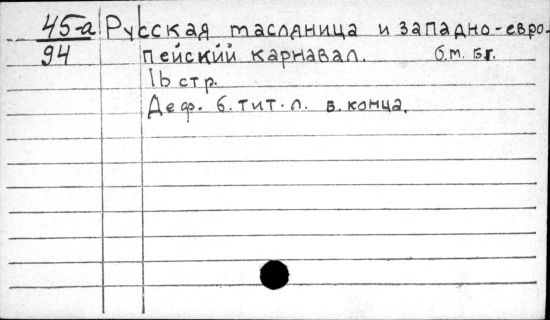 45-а Русская масляница и западно-евро-
94 пейский карнавал. б.м. б.г.
16 стр.
Деф. б. тит. л. в. конца.